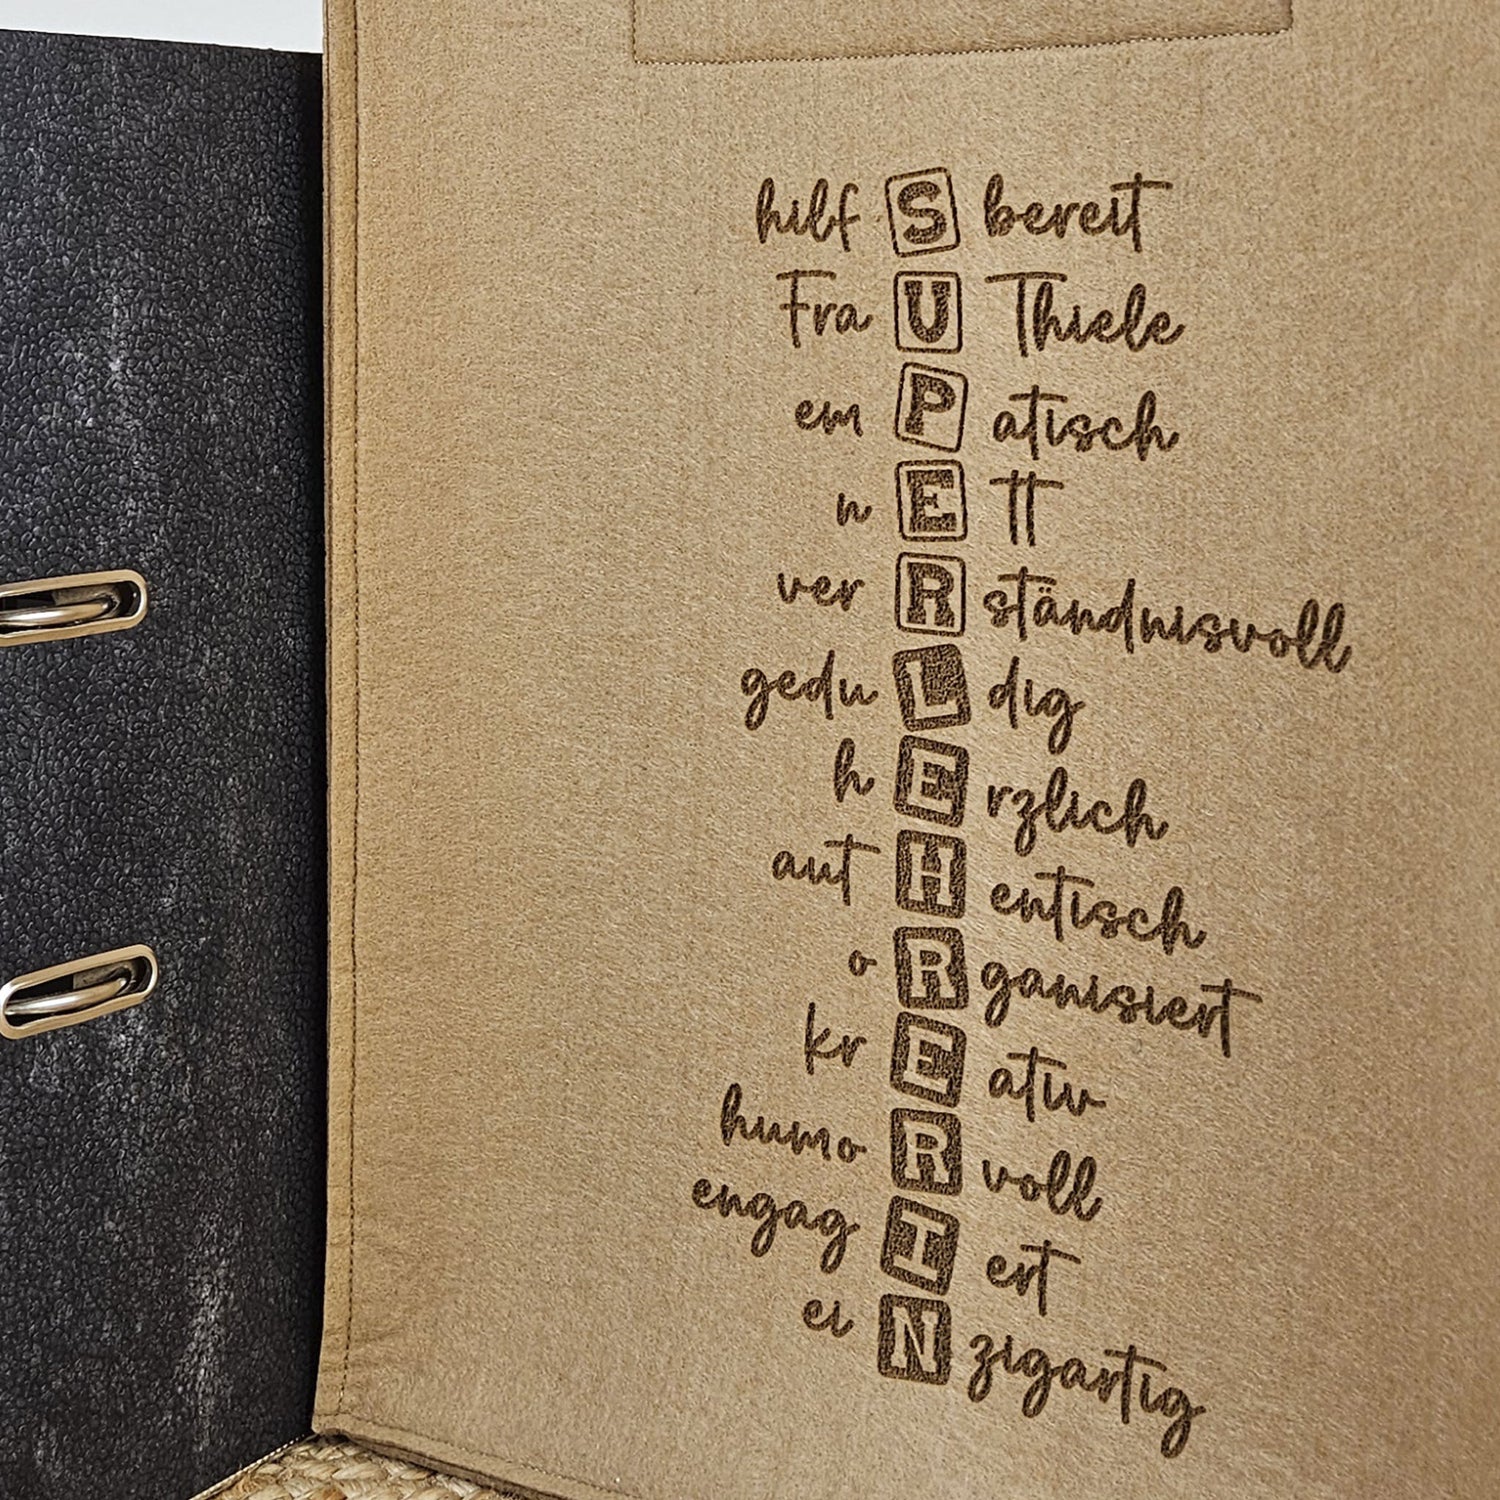 hilfSbereit
FraU Thiele
emPatisch
nEtt
veRständnisvoll
geduLdig
hErzlich
autHentisch
oRganisiert
krEativ
humoRvoll
engagIert
eiNzigartig